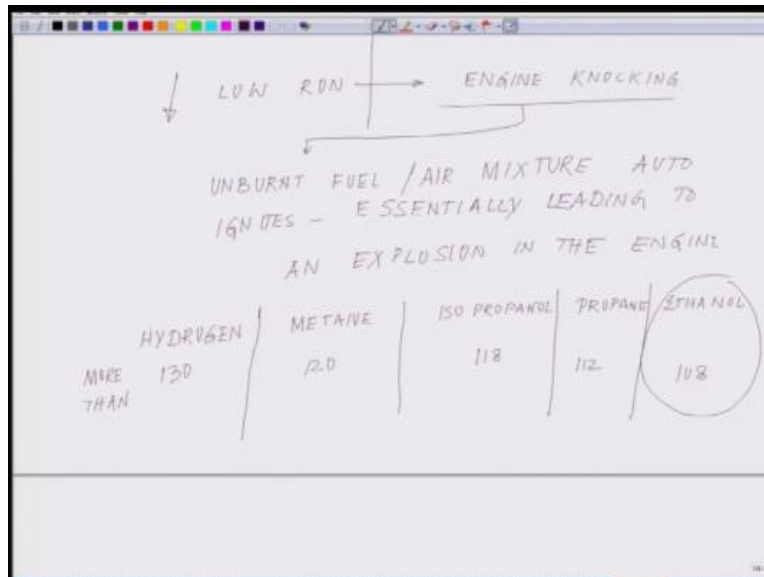 ↓ LOW RON → ENGINE KNOCKING
UNBURNT FUEL / AIR MIXTURE AUTO
IGNITES - ESSENTIALLY LEADING TO
AN EXPLOSION IN THE ENGINE
HYDROGEN METHANE ISO PROPANOL PROPANE ETHANOL
MORE THAN 130 120 118 112 108